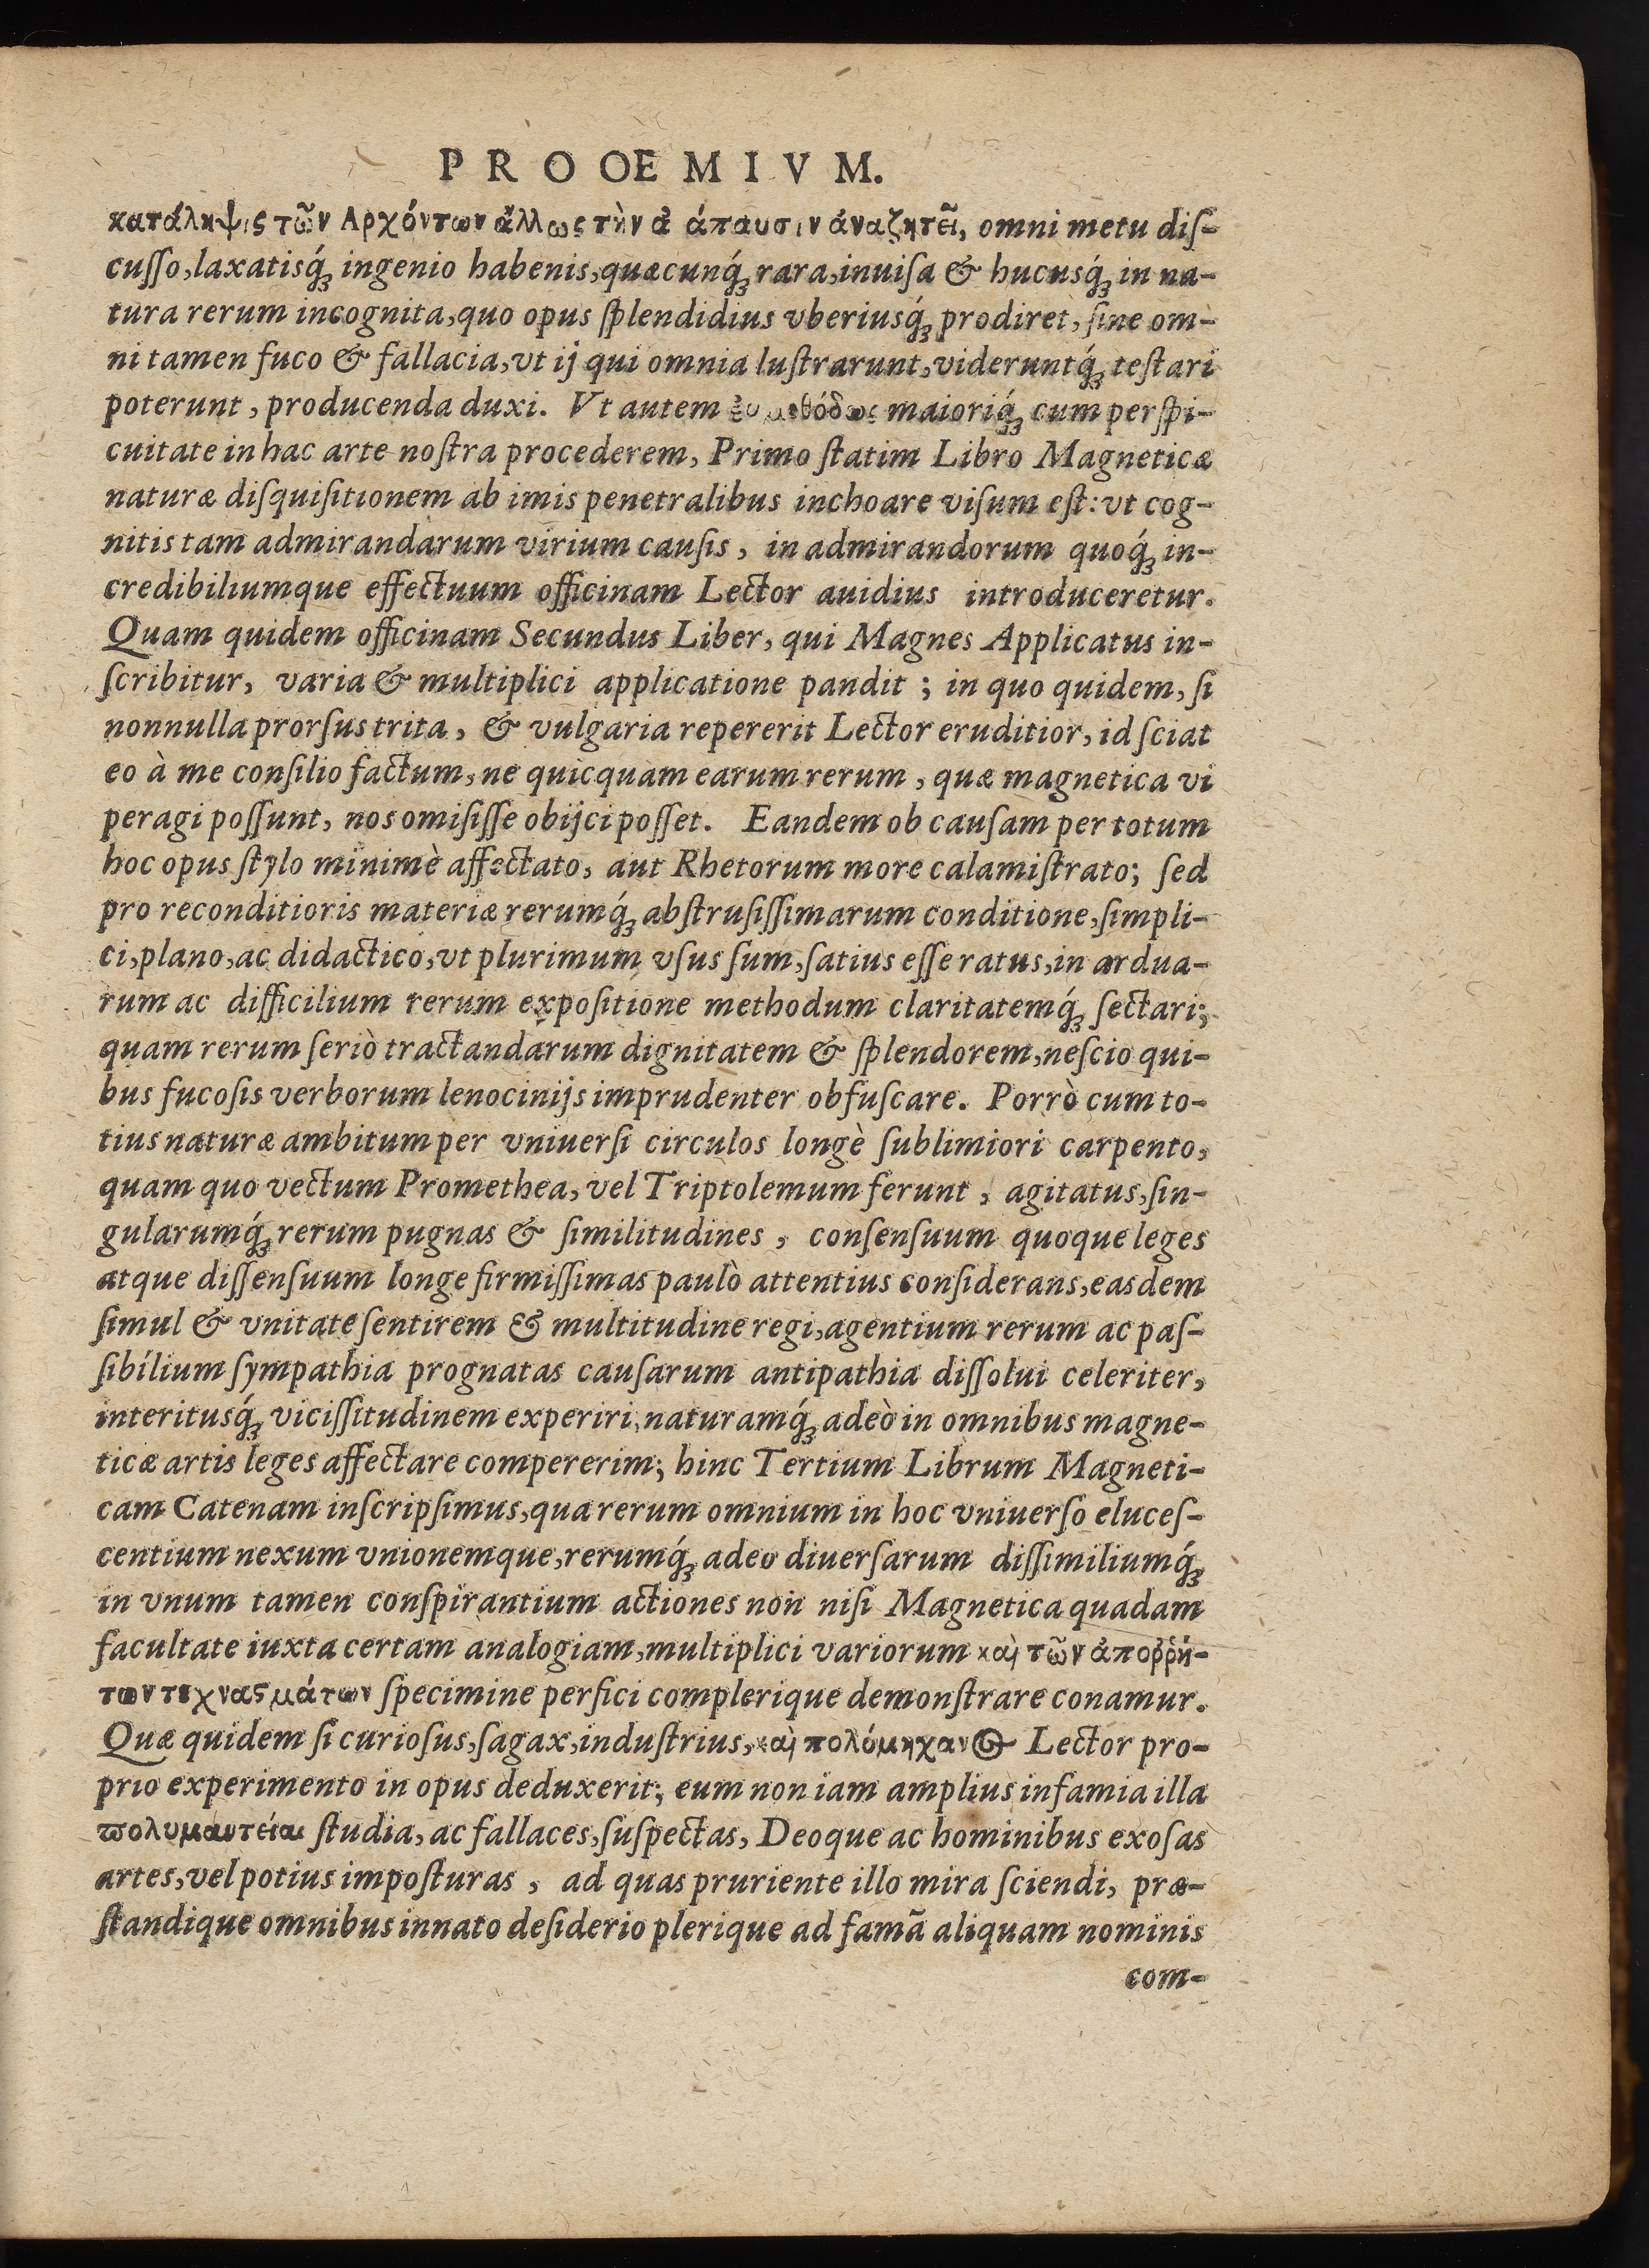 PROOEMIVM.
κατάληψις τῶν Αρχόντων ἄλλως τὴν ἀ άπαυσιν ἀναζητεῖ, omni metu diſ-
cuſſo, laxatisq́ꝫ ingenio habenis, quæcunq́ꝫ rara, inuiſa & hucusq́ꝫ in na-
tura rerum incognita, quo opus ſplendidius vberiusq́ꝫ prodiret, ſine om-
ni tamen fuco & fallacia, vt ij qui omnia luſtrarunt, videruntq́ꝫ teſtari
poterunt, producenda duxi. Vt autem maioriq́ꝫ cum perſpi-
cuitate in hac arte noſtra procederem, Primo ſtatim Libro Magneticæ
naturæ diſquiſitionem ab imis penetralibus inchoare viſum eſt: vt cog-
nitis tam admirandarum virium cauſis, in admirandorum quoq́ꝫ in-
credibiliumque effectuum officinam Lector auidius introduceretur.
Quam quidem officinam Secundus Liber, qui Magnes Applicatus in-
ſcribitur, varia & multiplici applicatione pandit; in quo quidem, ſi
nonnulla prorſus trita, & vulgaria repererit Lector eruditior, id ſciat
eo à me conſilio factum, ne quicquam earum rerum, quæ magnetica vi
peragi poſſunt, nos omiſiſſe obijci poſſet. Eandem ob cauſam per totum
hoc opus ſtylo minimè affectato, aut Rhetorum more calamiſtrato; ſed
pro reconditioris materiæ rerumq́ꝫ abſtruſiſſimarum conditione, ſimpli-
ci, plano, ac didactico, vt plurimum vſus ſum, ſatius eſſe ratus, in ardua-
rum ac difficilium rerum expoſitione methodum claritatemq́ꝫ ſectari;
quam rerum ſeriò tractandarum dignitatem & ſplendorem, neſcio qui-
bus fucoſis verborum lenocinijs imprudenter obfuſcare. Porrò cum to-
tius naturæ ambitum per vniuerſi circulos longè ſublimiori carpento,
quam quo vectum Promethea, vel Triptolemum ferunt, agitatus, ſin-
gularumq́ꝫ rerum pugnas & ſimilitudines, conſenſuum quoque leges
atque diſſenſuum longe firmiſſimas paulò attentius conſiderans, easdem
ſimul & vnitate ſentirem & multitudine regi, agentium rerum ac paſ-
ſibilium ſympathia prognatas cauſarum antipathia diſſolui celeriter,
interitusq́ꝫ viciſſitudinem experiri, naturamq́ꝫ adeò in omnibus magne-
ticæ artis leges affectare compererim; hinc Tertium Librum Magneti-
cam Catenam inſcripſimus, qua rerum omnium in hoc vniuerſo eluceſ-
centium nexum vnionemque, rerumq́ꝫ adeo diuerſarum diſſimiliumq́ꝫ
in vnum tamen conſpirantium actiones non niſi Magnetica quadam
facultate iuxta certam analogiam, multiplici variorum καὶ τῶν ἀποῤῥή-
των τεχνασμάτων ſpecimine perfici complerique demonſtrare conamur.
Quæ quidem ſi curioſus, ſagax, induſtrius, καὶ πολύμηχανος Lector pro-
prio experimento in opus deduxerit; eum non iam amplius infamia illa
πολυμαντείαι ſtudia, ac fallaces, ſuſpectas, Deoque ac hominibus exoſas
artes, vel potius impoſturas, ad quas pruriente illo mira ſciendi, præ-
ſtandique omnibus innato deſiderio plerique ad famã aliquam nominis
com-